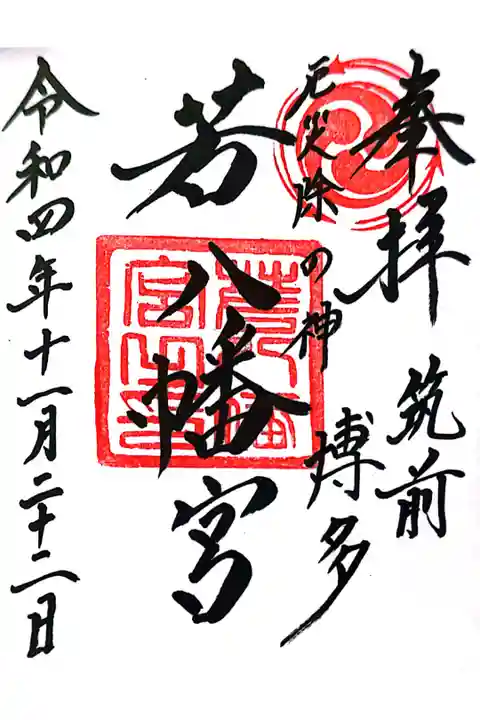 奉拝 筑前
厄災除の神 博多
若八幡宮
令和四年十一月二十二日